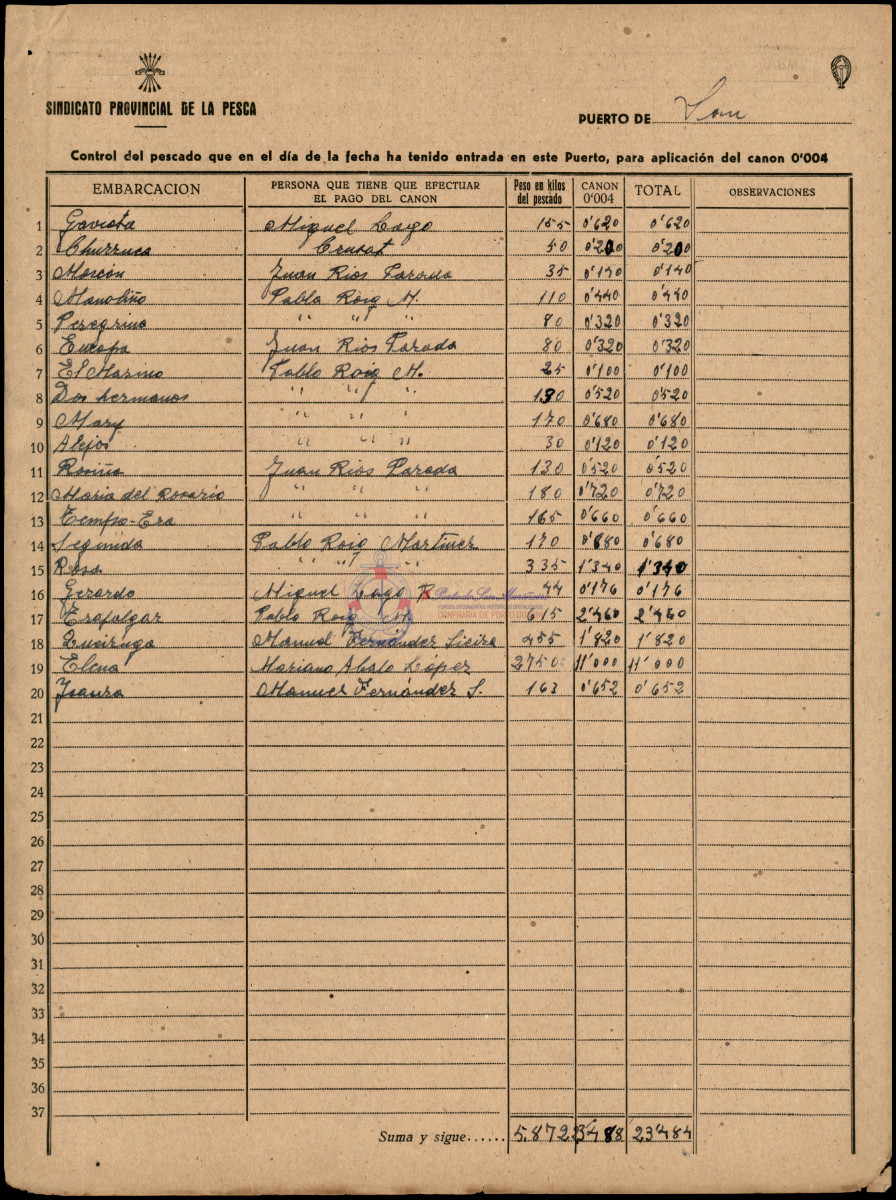 SINDICATO PROVINCIAL DE LA PESCA
PUERTO DE Son
Control del pescado que en el día de la fecha ha tenido entrada en este Puerto, para aplicación del canon 0'004
EMBARCACION PERSONA QUE TIENE QUE EFECTUAR EL PAGO DEL CANON Peso en kilos del pescado CANON 0'004 TOTAL OBSERVACIONES
1 Gaviota Miguel Lago 155 0'620 0'620
2 Churruca Crusat 50 0'200 0'200
3 Moscón Juan Rios Parada 35 0'140 0'140
4 Manoliño Pablo Roig M. 110 0'440 0'440
5 Peregrina " " " 80 0'320 0'320
6 Europa Juan Rios Parada 80 0'320 0'320
7 El Marino Pablo Roig M. 25 0'100 0'100
8 Dos hermanos " " " 130 0'520 0'520
9 Mary " " " 170 0'680 0'680
10 Alejos " " " 30 0'120 0'120
11 Rosiña Juan Rios Parada 130 0'520 0'520
12 Maria del Rosario " " " 180 0'720 0'720
13 Tempo-Era " " " 165 0'660 0'660
14 Segunda Pablo Roig Martinez 170 0'680 0'680
15 Rosa " " " 335 1'340 1'340
16 Gerardo Miguel Lago R 44 0'176 0'176
17 Trafalgar Pablo Roig M. 615 2'460 2'460
18 Quiruga Manuel Fernández Sieira 455 1'820 1'820
19 Elena Mariano Abalo López 2750 11'000 11'000
20 Isaura Manuel Fernández S. 163 0'652 0'652
21
22
23
24
25
26
27
28
29
30
31
32
33
34
35
36
37
Suma y sigue...... 5.872 23'488 23'484
Porto do Son
CONFRARÍA DE PORTO DO SON